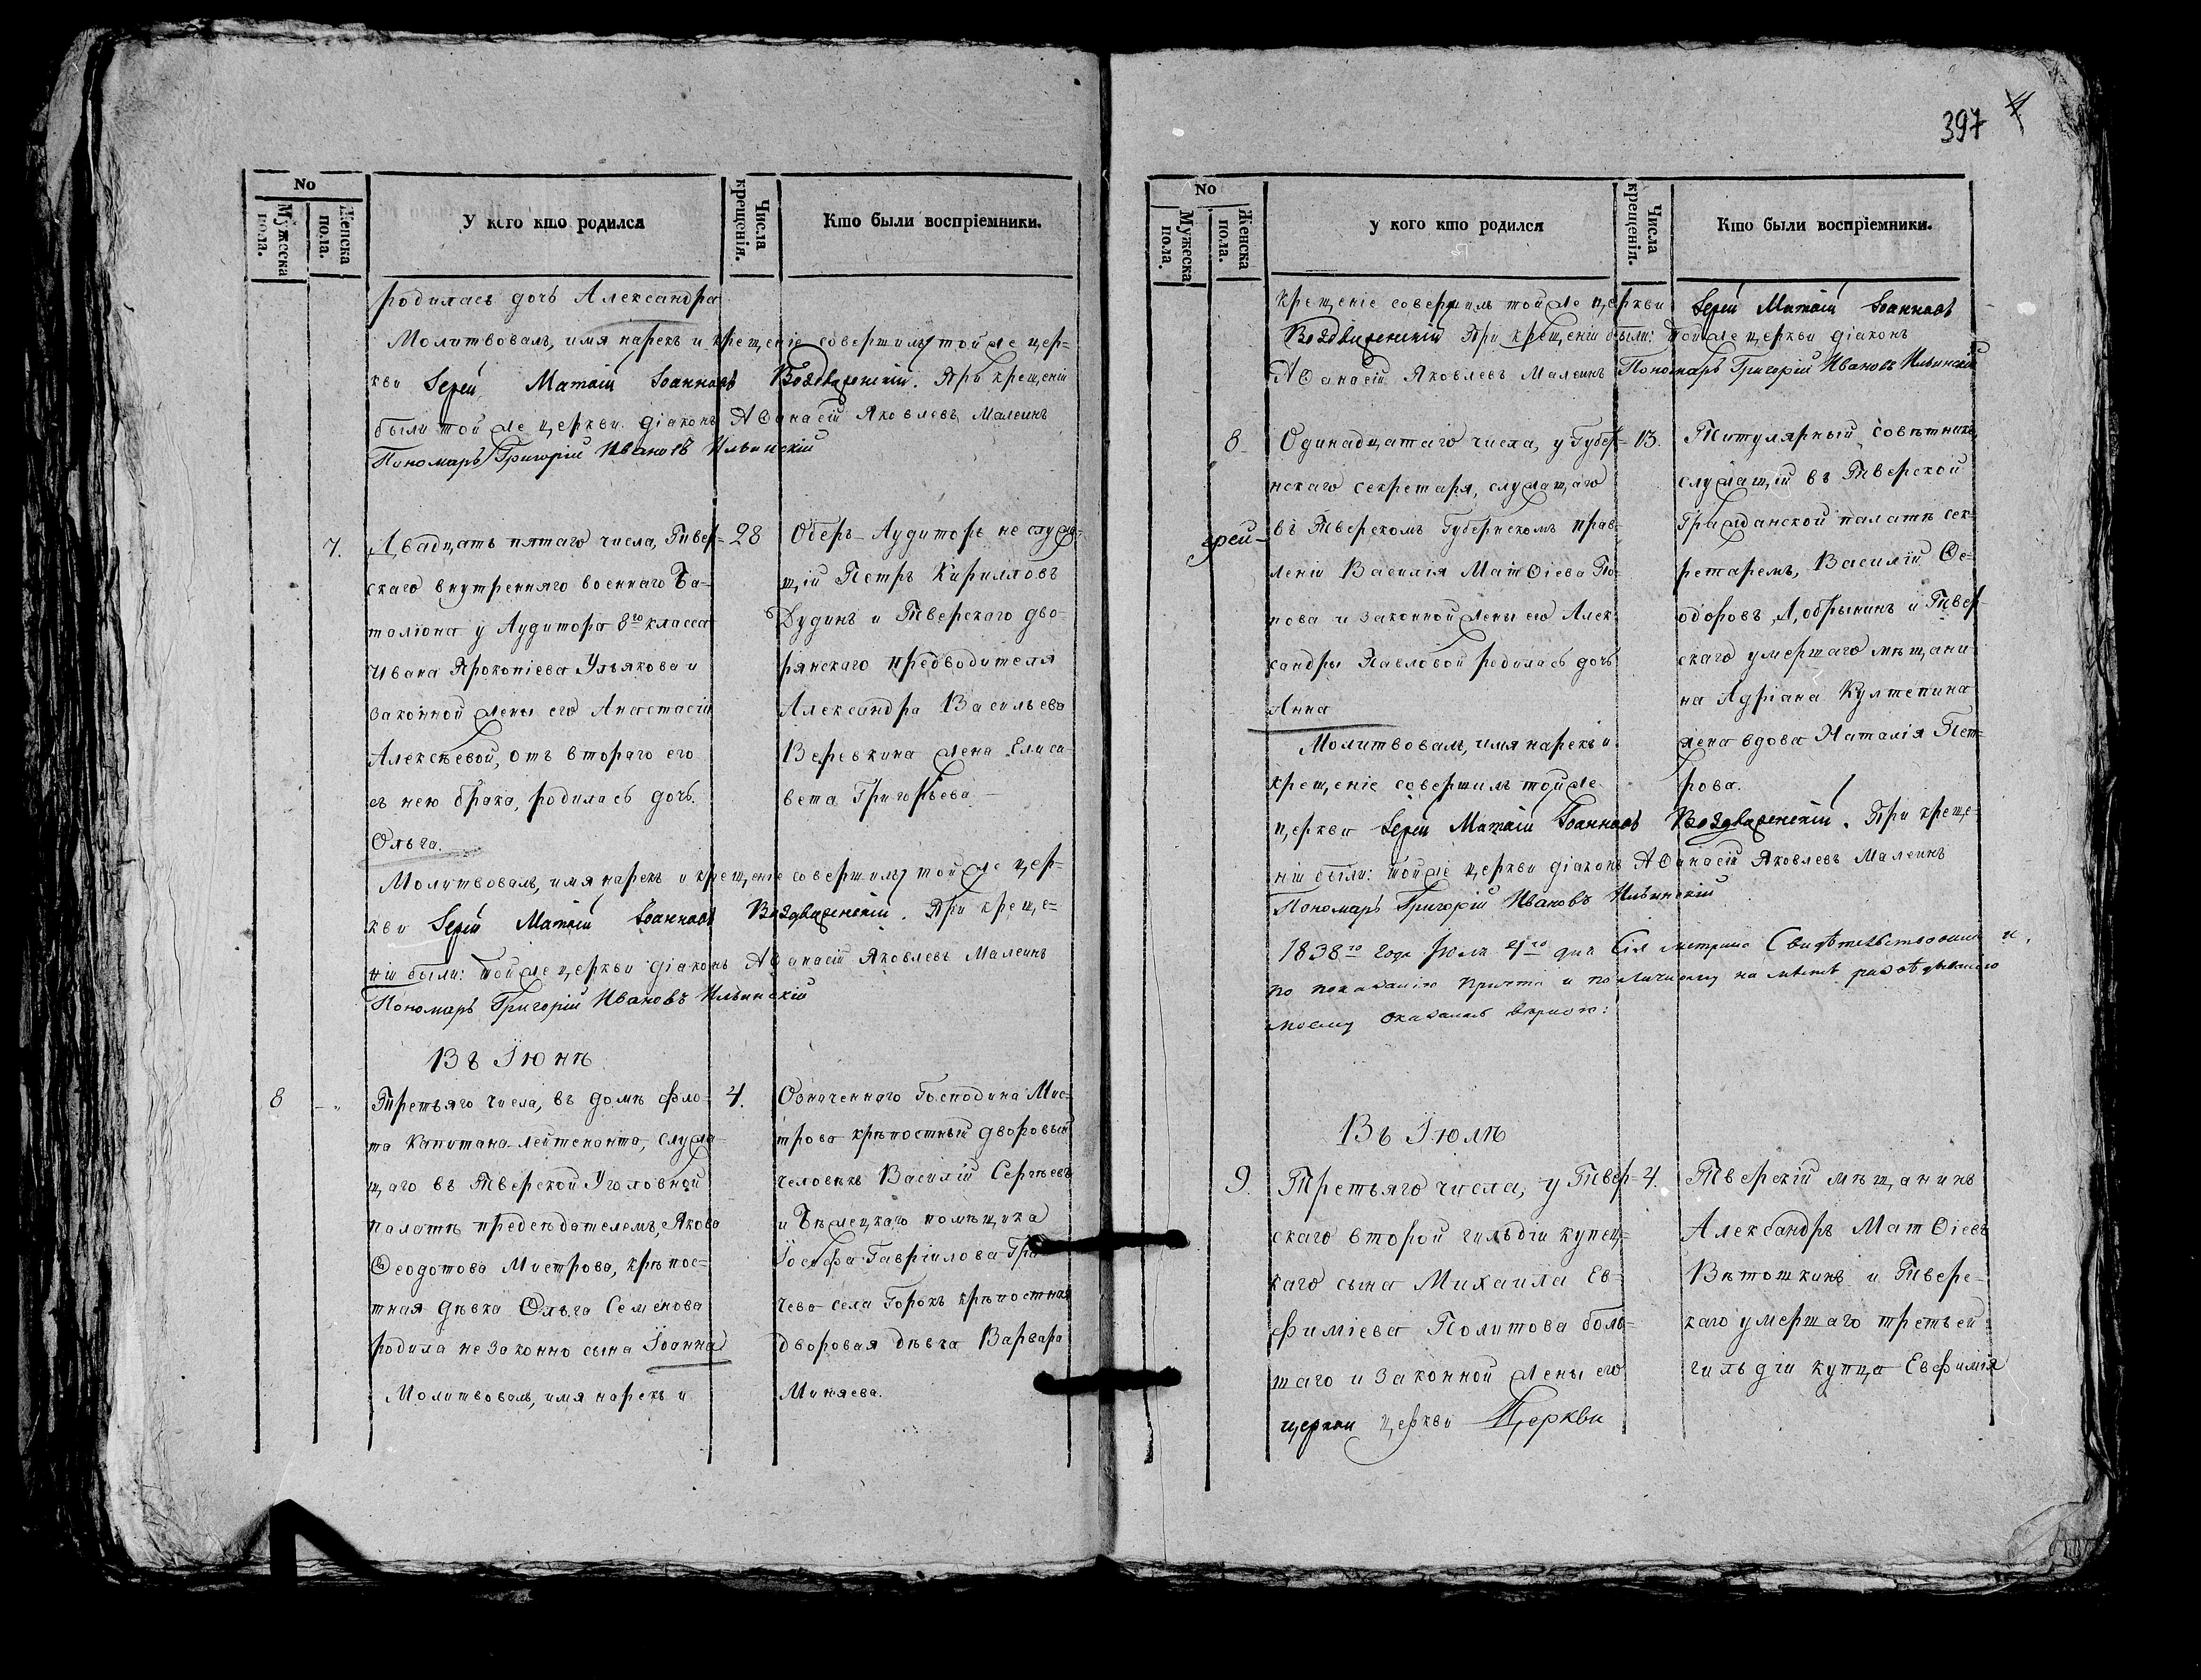 397
No
Мужеска пола.
Женска пола.
У кого кто родился
Числа крещенія.
Кто были воспріемники.
родилась дочь Александра
Молитвовалъ, имя нарекъ и крещеніе совершилъ той же цер=
кви Іерей Матѳій Іоанновъ Воздвиженскій. При крещеніи
были той же церкви діаконъ Аѳанасій Яковлевъ Малеинъ
Пономарь Григорій Ивановъ Ильинскій
7. Двадцать пятаго числа, Твер=
скаго внутренняго военнаго Ба=
таліона у Аудитора 8го класса
Ивана Прокопіева Ульякова и
законной жены его Анастасіи
Алексѣевой, отъ втораго его
съ нею брака, родилась дочь
Ольга.
28
Оберъ-Аудиторъ не служа-
щій Петръ Кирилловъ
Дудинъ и Тверскаго дво-
рянскаго предводителя
Александра Васильева
Веревкина жена Елиса-
вета Григорьева
Молитвовалъ, имя нарекъ и крещеніе совершилъ той же цер=
кви Іерей Матѳій Іоанновъ Воздвиженскій. При креще=
ніи были: той же церкви діаконъ Аѳанасій Яковлевъ Малеинъ
Пономарь Григорій Ивановъ Ильинскій
Въ Іюнѣ
8 Третьяго числа, въ домѣ фло=
та Капитана-лейтенанта, служа-
щаго въ Тверской Уголовной
палатѣ предсѣдателемъ, Якова
Ѳеодотова Мистрова, крѣпос=
тная дѣвка Ольга Семенова
родила незаконно сына Іоанна
Молитвовалъ, имя нарекъ и
4.
Означеннаго Господина Мис=
трова крѣпостный дворовый
человѣкъ Василій Сергѣевъ
и Бѣжецкаго помѣщика
Іосифа Гавріилова
чева села Горокъ крѣпостная
дворовая дѣвка Варвара
Миняева.
No
Мужеска пола.
Женска пола.
У кого кто родился
Числа крещенія.
Кто были воспріемники.
крещеніе совершилъ той же церкви Іерей Матѳій Іоанновъ
Воздвиженскій При крещеніи были: той же церкви діаконъ
Аѳанасій Яковлевъ Малеинъ Пономарь Григорій Ивановъ Ильинскій
8 Одинадцатаго числа, у Губер=
нскаго секретаря, служащаго
въ Тверскомъ Губернскомъ прав=
леніи Василія Матѳіева По=
пова и законной жены его Алек=
сандры Павловой родилась дочь
Анна
13.
Титулярный совѣтникъ,
служащій въ Тверской
Гражданской палатѣ сек=
ретаремъ, Василій Ѳе=
одоровъ Добрынинъ и Твер-
скаго умершаго мѣщани-
на Адріана Култепина
жена вдова Наталія Пет=
рова.
Молитвовалъ, имя нарекъ и
крещеніе совершилъ той же
церкви Іерей Матѳій Іоанновъ Воздвиженскій. При креще=
ніи были: той же церкви діаконъ Аѳанасій Яковлевъ Малеинъ
Пономарь Григорій Ивановъ Ильинскій
1838го года Іюля дня Сія метрика Свидѣтельствована и
по показанію причта и по личному на мѣстѣ
моему оказалась вѣрною:
Въ Іюлѣ
9. Третьяго числа, у Твер=
скаго второй гильдіи купец=
каго сына Михаила Ев=
фиміева Политова боль=
шаго и законной жены его
церкви церкви Церкви
4.
Тверскій мѣщанинъ
Александръ Матѳіевъ
Вѣтошкинъ и Тверс-
каго умершаго третьей
гильдіи купца Евфимія